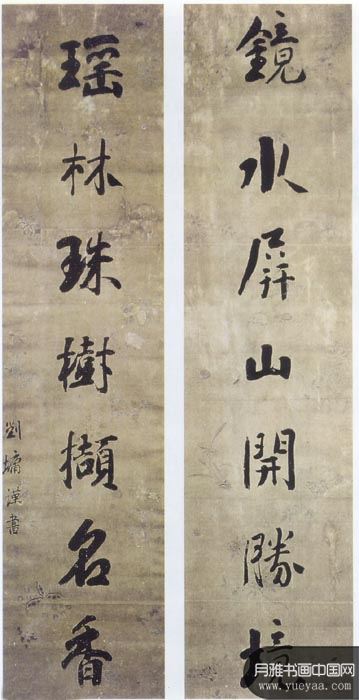 鏡水屏山開勝境
瑶林珠樹擷名香
劉墉謹書
月雅书画中国网
www.yueyaa.com